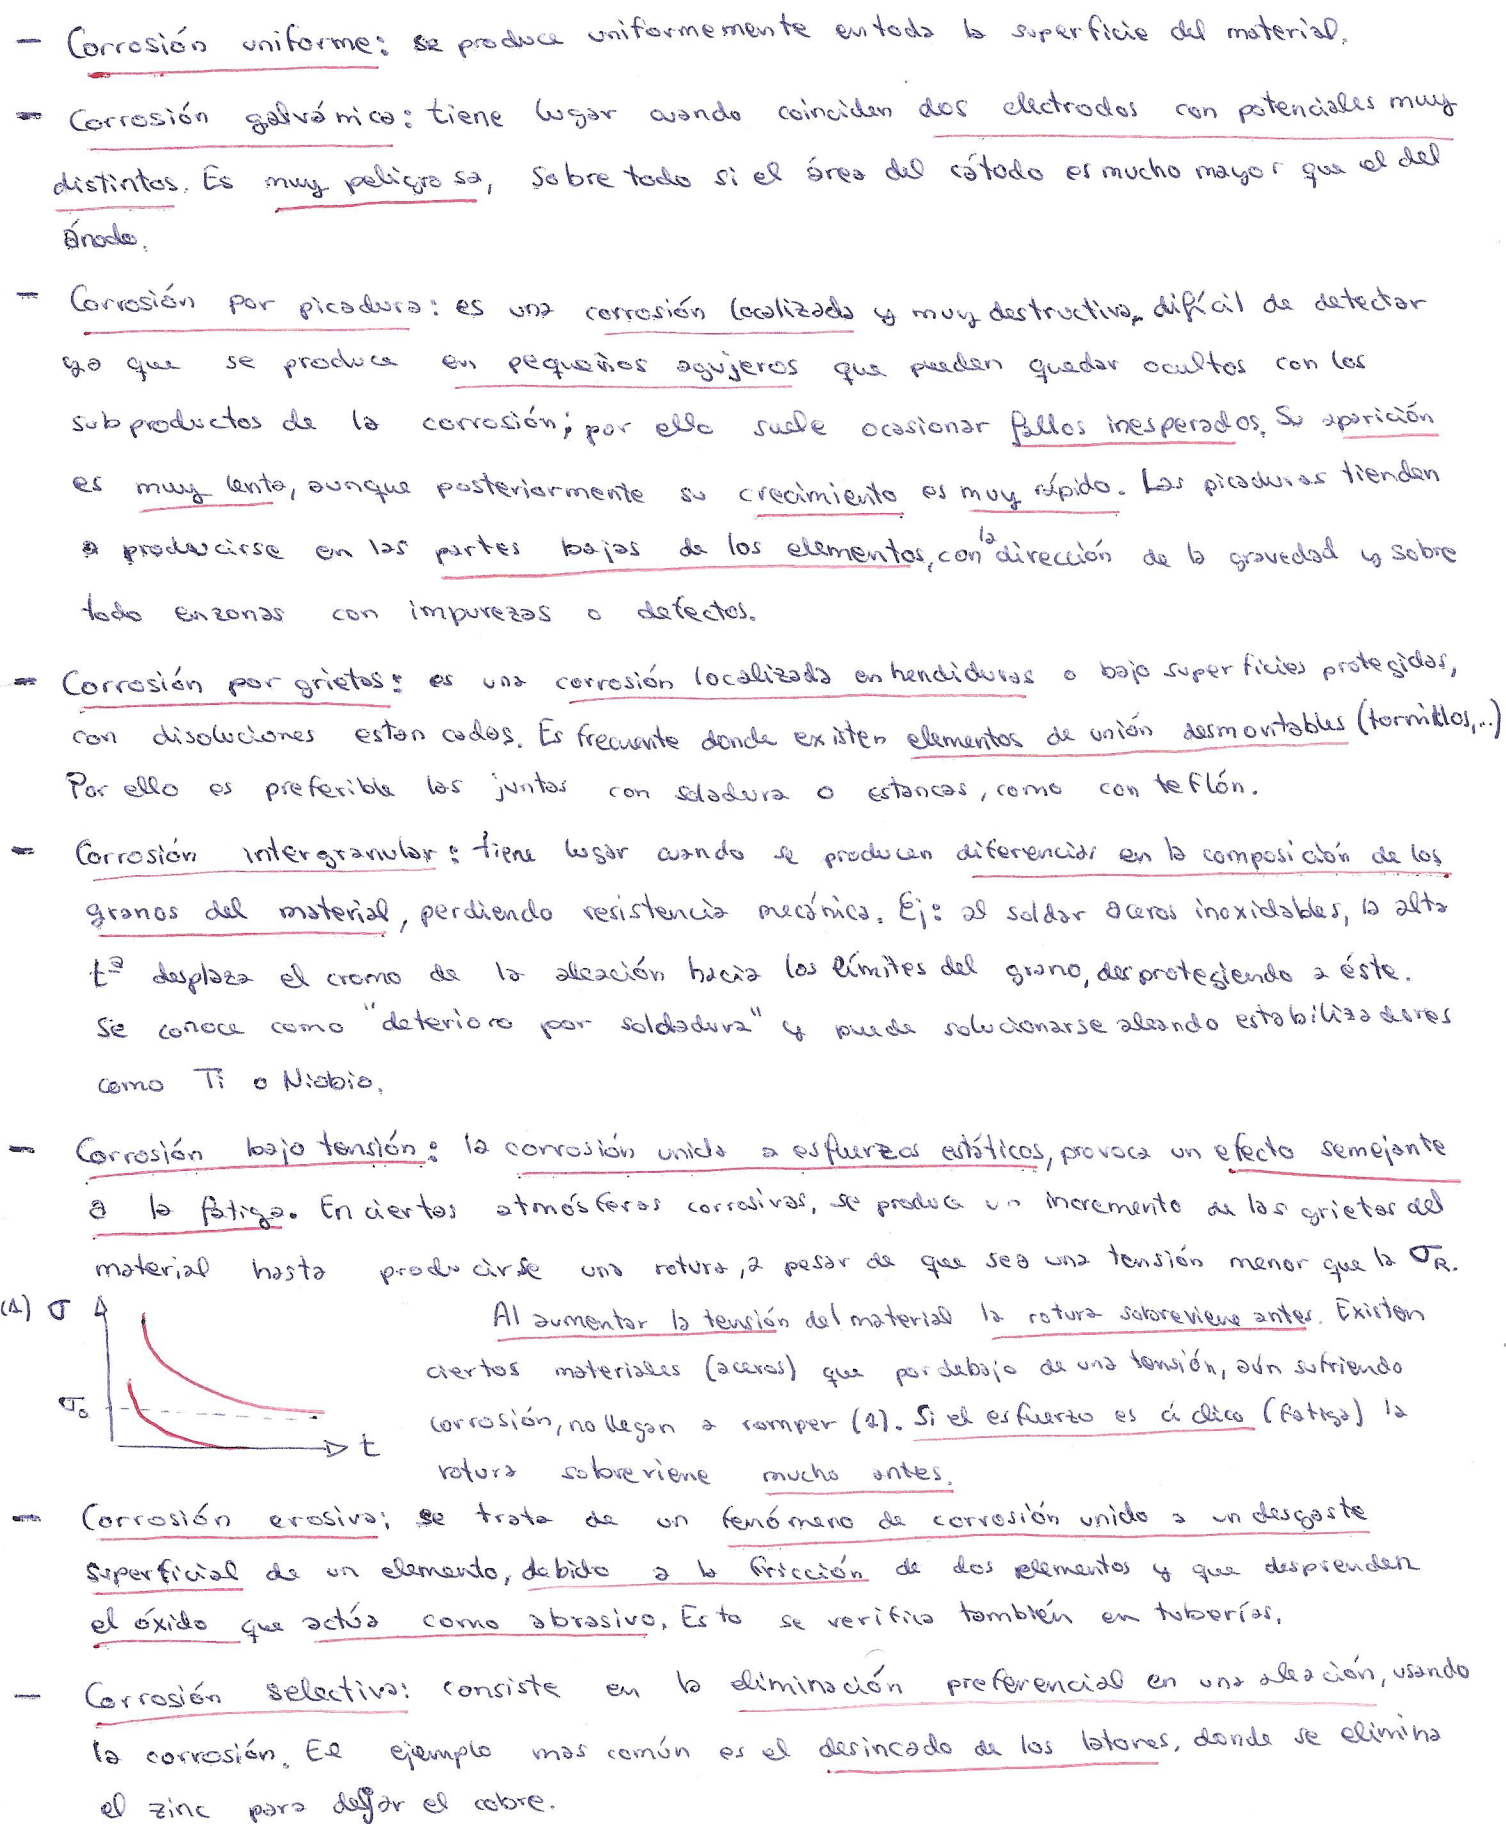 - Corrosión uniforme: se produce uniformemente en toda la superficie del material.
- Corrosión galvánica: tiene lugar cuando coinciden dos electrodos con potenciales muy
distintos. Es muy peligrosa, sobre todo si el área del cátodo es mucho mayor que el del
ánodo.
- Corrosión por picadura: es una corrosión localizada y muy destructiva, difícil de detectar
ya que se produce en pequeños agujeros que pueden quedar ocultos con los
subproductos de la corrosión; por ello suele ocasionar fallos inesperados. Su aparición
es muy lenta, aunque posteriormente su crecimiento es muy rápido. Las picaduras tienden
a producirse en las partes bajas de los elementos, con la dirección de la gravedad y sobre
todo en zonas con impurezas o defectos.
- Corrosión por grietas: es una corrosión localizada en hendiduras o bajo superficies protegidas,
con disoluciones estancadas. Es frecuente donde existen elementos de unión desmontables (tornillos,...)
Por ello es preferible las juntas con soldadura o estancas, como con teflón.
- Corrosión intergranular: tiene lugar cuando se producen diferencias en la composición de los
granos del material, perdiendo resistencia mecánica. Ej: al soldar aceros inoxidables, la alta
tª desplaza el cromo de la aleación hacia los límites del grano, desprotegiendo a éste.
Se conoce como "deterioro por soldadura" y puede solucionarse aleando estabilizadores
como Ti o Niobio.
- Corrosión bajo tensión: la corrosión unida a esfuerzos estáticos, provoca un efecto semejante
a la fatiga. En ciertas atmósferas corrosivas, se produce un incremento de las grietas del
material hasta producirse una rotura, a pesar de que sea una tensión menor que la σR.
(1) σ
σ0
t
Al aumentar la tensión del material la rotura sobreviene antes. Existen
ciertos materiales (aceros) que por debajo de una tensión, aún sufriendo
corrosión, no llegan a romper (1). Si el esfuerzo es cíclico (fatiga) la
rotura sobreviene mucho antes.
- Corrosión erosiva: se trata de un fenómeno de corrosión unido a un desgaste
superficial de un elemento, debido a la fricción de dos elementos y que desprenden
el óxido que actúa como abrasivo. Esto se verifica también en tuberías.
- Corrosión selectiva: consiste en la eliminación preferencial en una aleación, usando
la corrosión. El ejemplo mas común es el desincado de los latones, donde se elimina
el zinc para dejar el cobre.